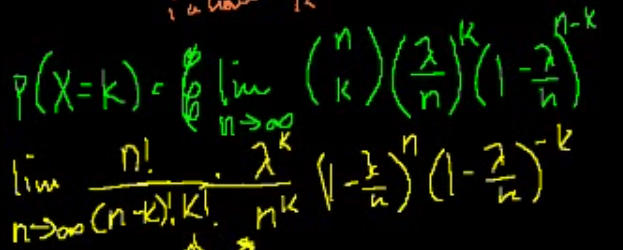 P(X=k) = lim n→∞ (n k) (λ/n)^k (1 - λ/n)^n-k
lim n→∞ n!/(n-k)! k! · λ^k/n^k (1 - λ/n)^n (1 - λ/n)^-k